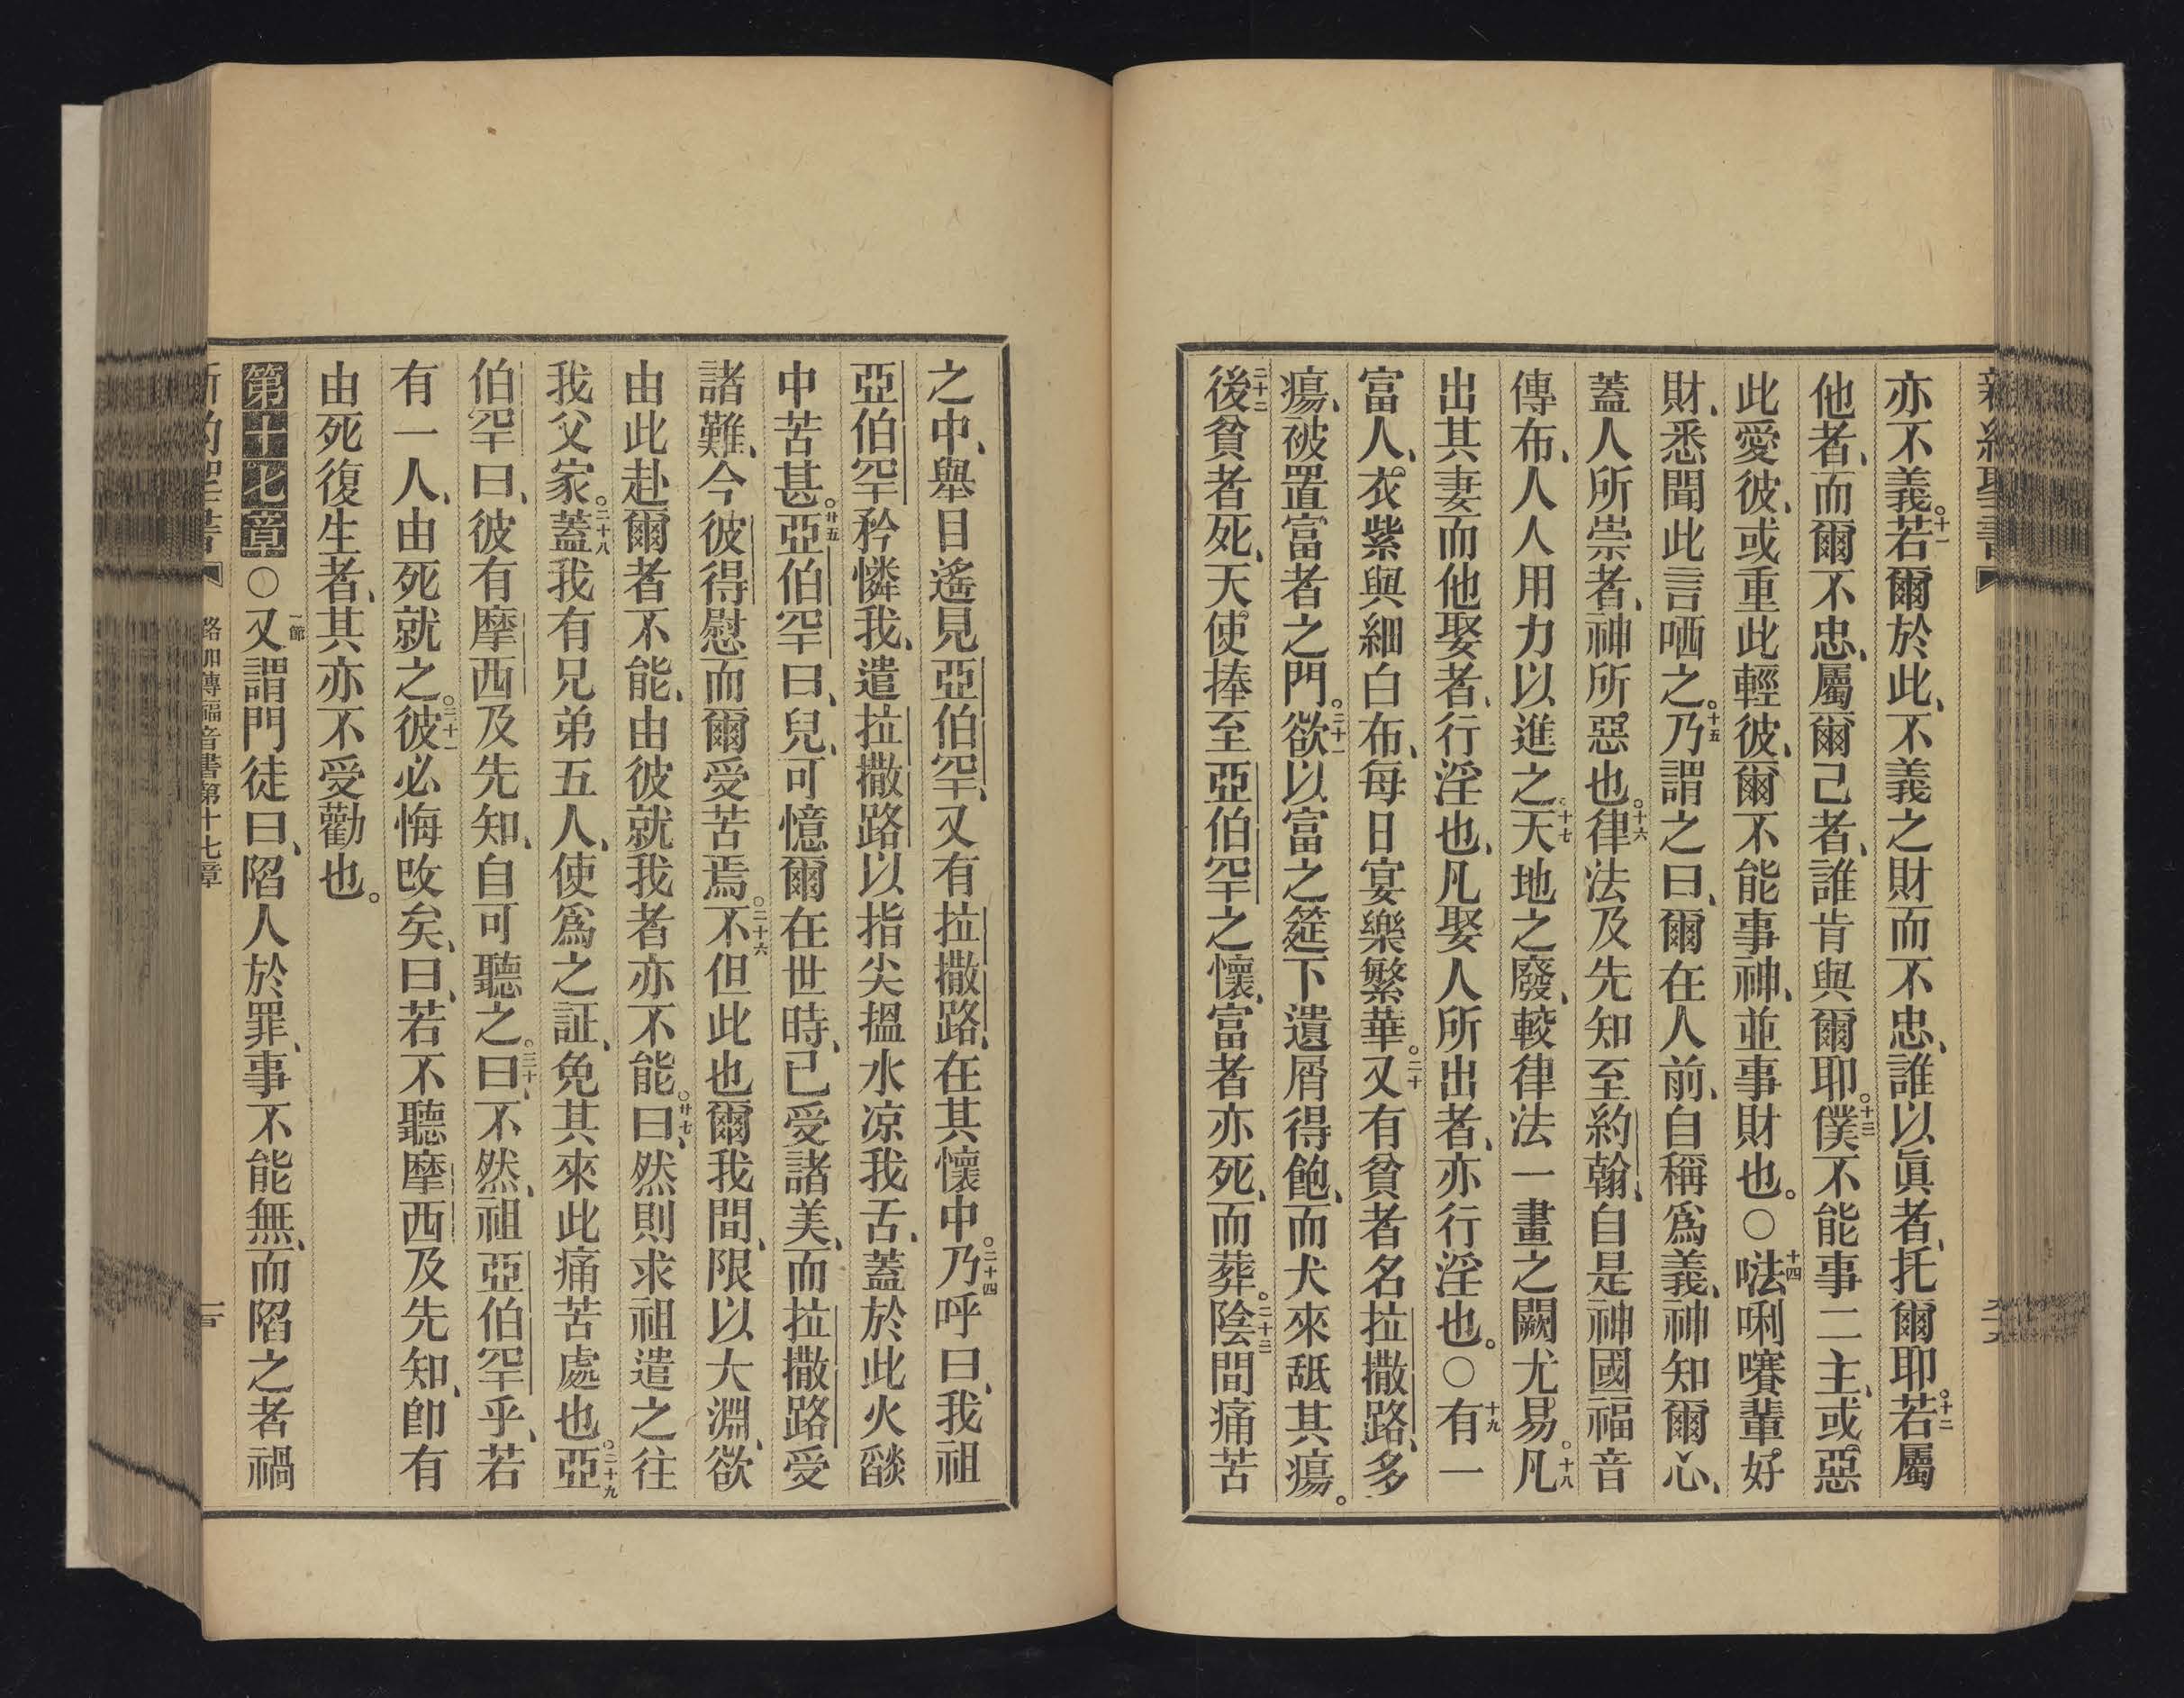 新約聖書
亦不義。十一若爾於此、不義之財而不忠、誰以眞者、托爾耶。十二若屬
他者、而爾不忠、屬爾己者、誰肯與爾耶。十三僕不能事二主、或惡
此愛彼、或重此輕彼、爾不能事神、並事財也。○十四𠵽唎㘔輩好
財、悉聞此言哂之。十五乃謂之曰、爾在人前、自稱爲義、神知爾心、
蓋人所崇者、神所惡也。十六律法及先知至約翰、自是神國福音
傳布、人人用力以進之。十七天地之廢、較律法一畫之闕尤易。十八凡
出其妻而他娶者、行淫也、凡娶人所出者、亦行淫也。○十九有一
富人、衣紫與細白布、每日宴樂繁華。二十又有貧者名拉撒路、多
瘍、被置富者之門。二十一欲以富之筵下遺屑得飽、而犬來舐其瘍。
二十二後貧者死、天使捧至亞伯罕之懷、富者亦死、而葬。二十三陰間痛苦
之中、舉目遙見亞伯罕、又有拉撒路、在其懷中。二十四乃呼曰、我祖
亞伯罕矜憐我、遣拉撒路以指尖搵水凉我舌、蓋於此火燄
中苦甚。廿五亞伯罕曰、兒、可憶爾在世時、已受諸美、而拉撒路受
諸難、今彼得慰而爾受苦焉。二十六不但此也爾我間、限以大淵、欲
由此赴爾者不能、由彼就我者亦不能。廿七曰、然則求祖遣之往
我父家。二十八蓋我有兄弟五人、使爲之証、免其來此痛苦處也。二十九亞
伯罕曰、彼有摩西及先知、自可聽之。三十曰、不然、祖亞伯罕乎、若
有一人、由死就之。三十一彼必悔改矣、曰、若不聽摩西及先知、卽有
由死復生者、其亦不受勸也。
第十七章○一節又謂門徒曰、陷人於罪、事不能無、而陷之者禍
新約聖書 路加傳福音書第十七章